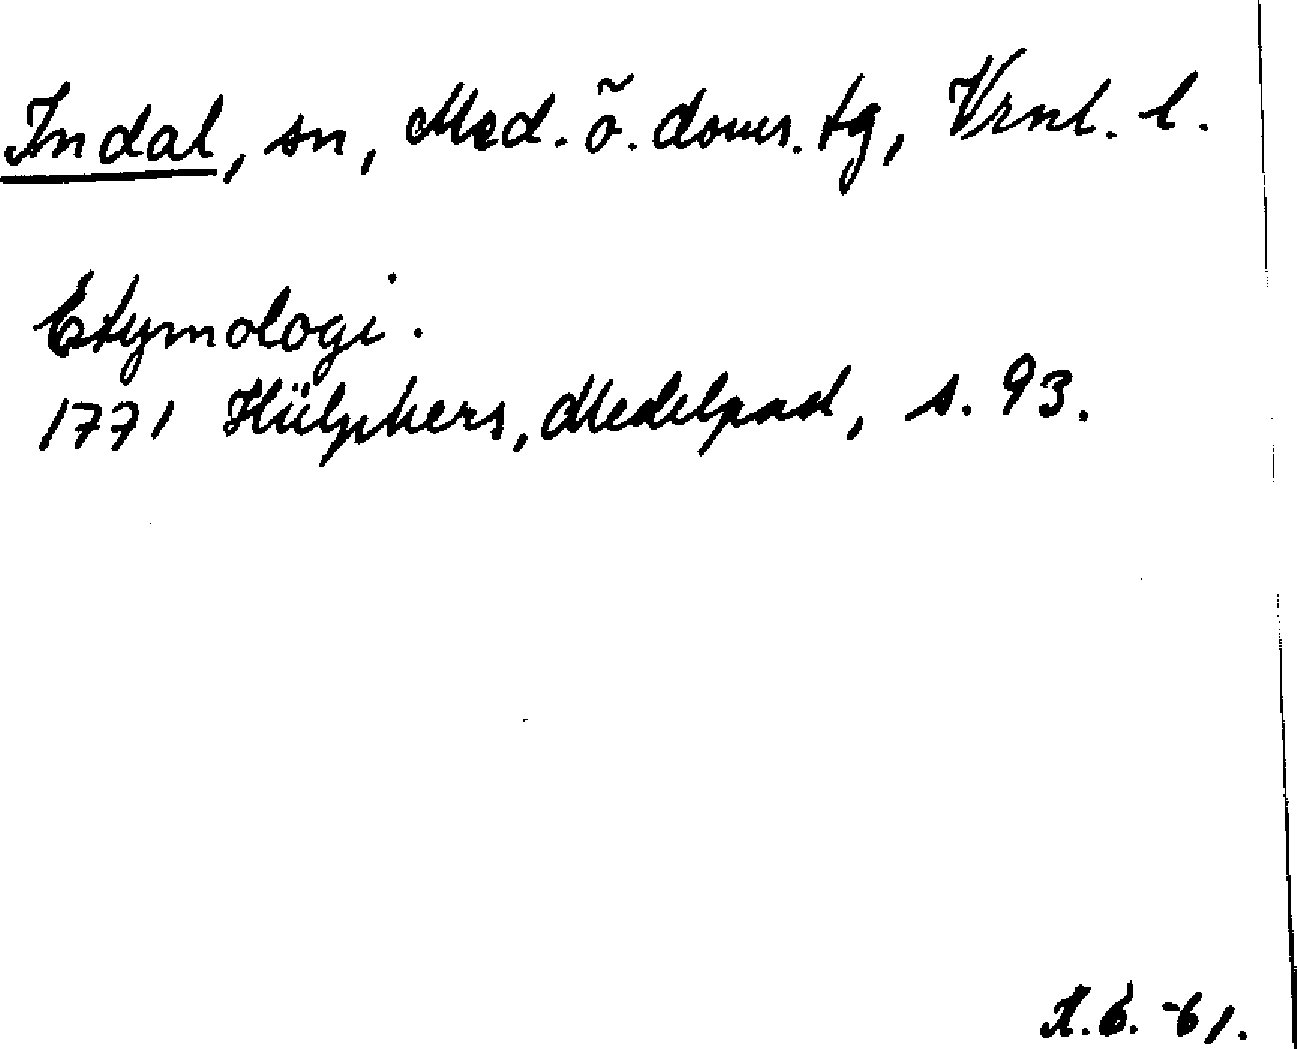 Indal, sn, Med. ö. doms. tg, Vrnl. l.
Etymologi.
1771 Hülphers, Medelpad, s. 93.
-61.